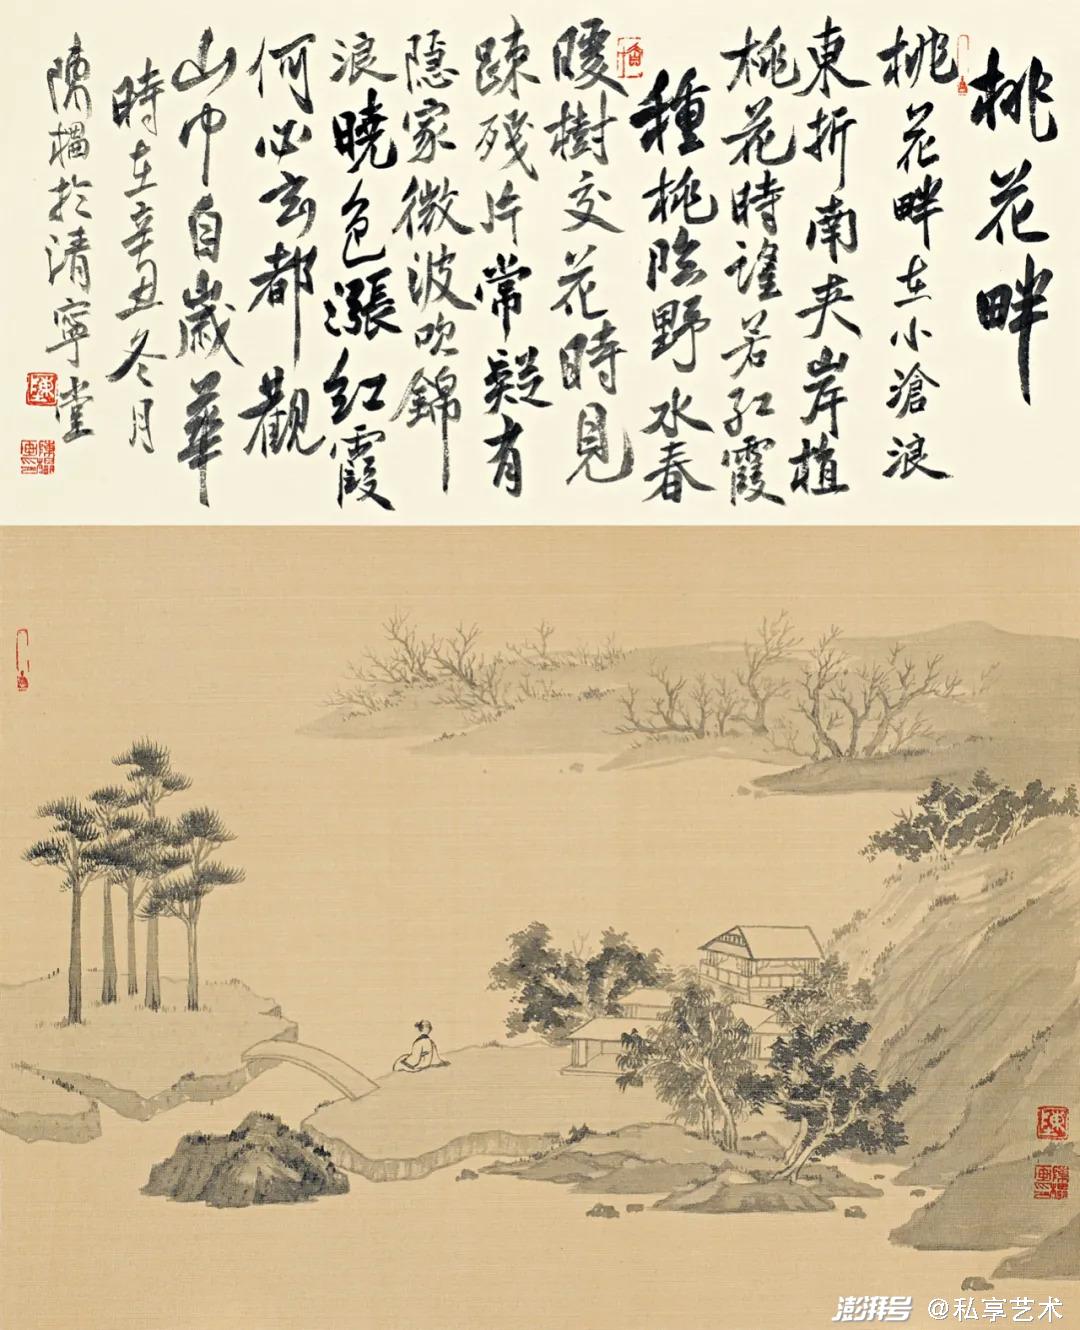 桃花畔
桃花畔在小滄浪
東折南夾岸植
桃花時望若紅霞
種桃臨野水春
暖樹交花時見
踈殘片常疑有
隱家微波吹錦
浪曉色漲紅霞
何必玄都觀
山中自歲華
時在辛丑冬月
陳於清寧堂
陳
陳
澎湃号 @私享艺术